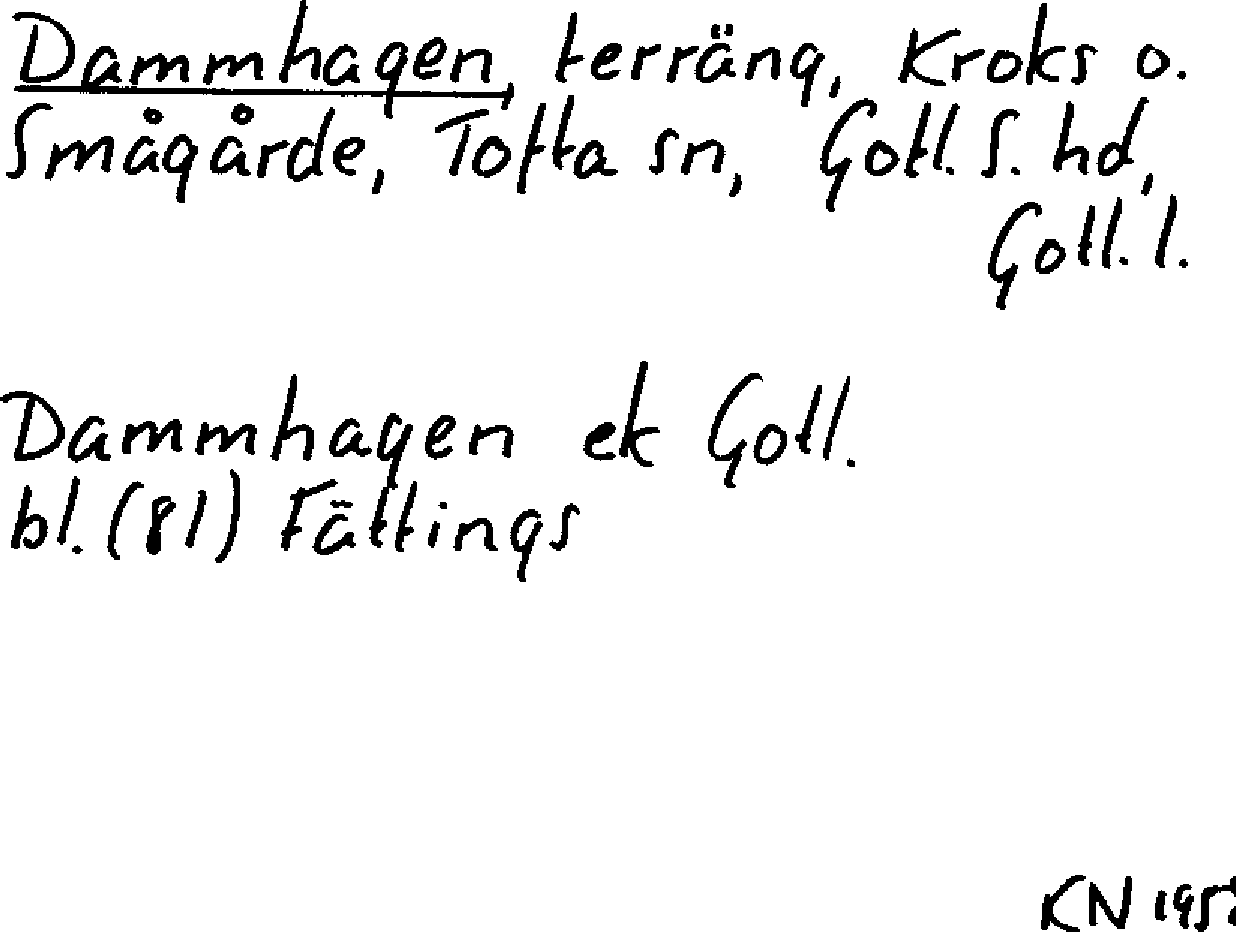 Dammhagen, terräng, Kroks o.
Smågårde, Tofta sn, Gotl. S. hd,
Gotl. l.
Dammhagen ek Gotl.
bl. (81) Fättings
KN